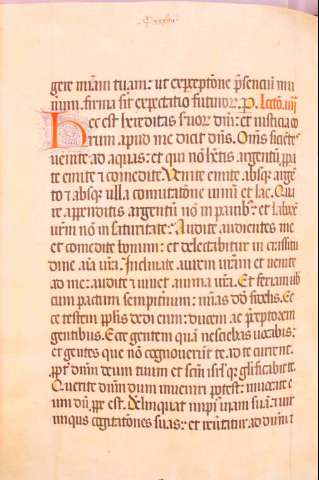 gere misericordiam tuam: ut exceptione presencium mu
num. firma sit expectatio futurorum. p. Lectio. iiii
Hec est hereditas servorum domini: et iusticia eo
rum apud me dicit dns. Omnes sicientes
venite ad aquas: et qui non habetis argentum, ppa
te emite et comedite. Venite emite absque argen
to et absque ulla comutatione vinum et lac. Qua
re appenditis argentum non in panibus: et laborem
vestrum non in saturitate: Audite audientes me
et comedite bonum: et delectabitur in crassitu
dine aīa vīa. Inclinate aurem vestram et venite
ad me: audite et vivet anima vestra. Et feriam vob
cum pactum sempiternum: mīas david fidelis. Ec
ce testem populis dedi eum: ducem ac preceptorem
gentibus. Ecce gentem quam nesciebas vocabis:
et gentes que non cognoverunt te. ad te current.
ppt dnm deum tuum et scm isrl qr glificabit te.
Querite dnm dum inveniri potest: invocate e
um dum, ppe est. Delinquat impius viam suam: et vir
iniquus cogitationes suas: et revertatur ad dnm et